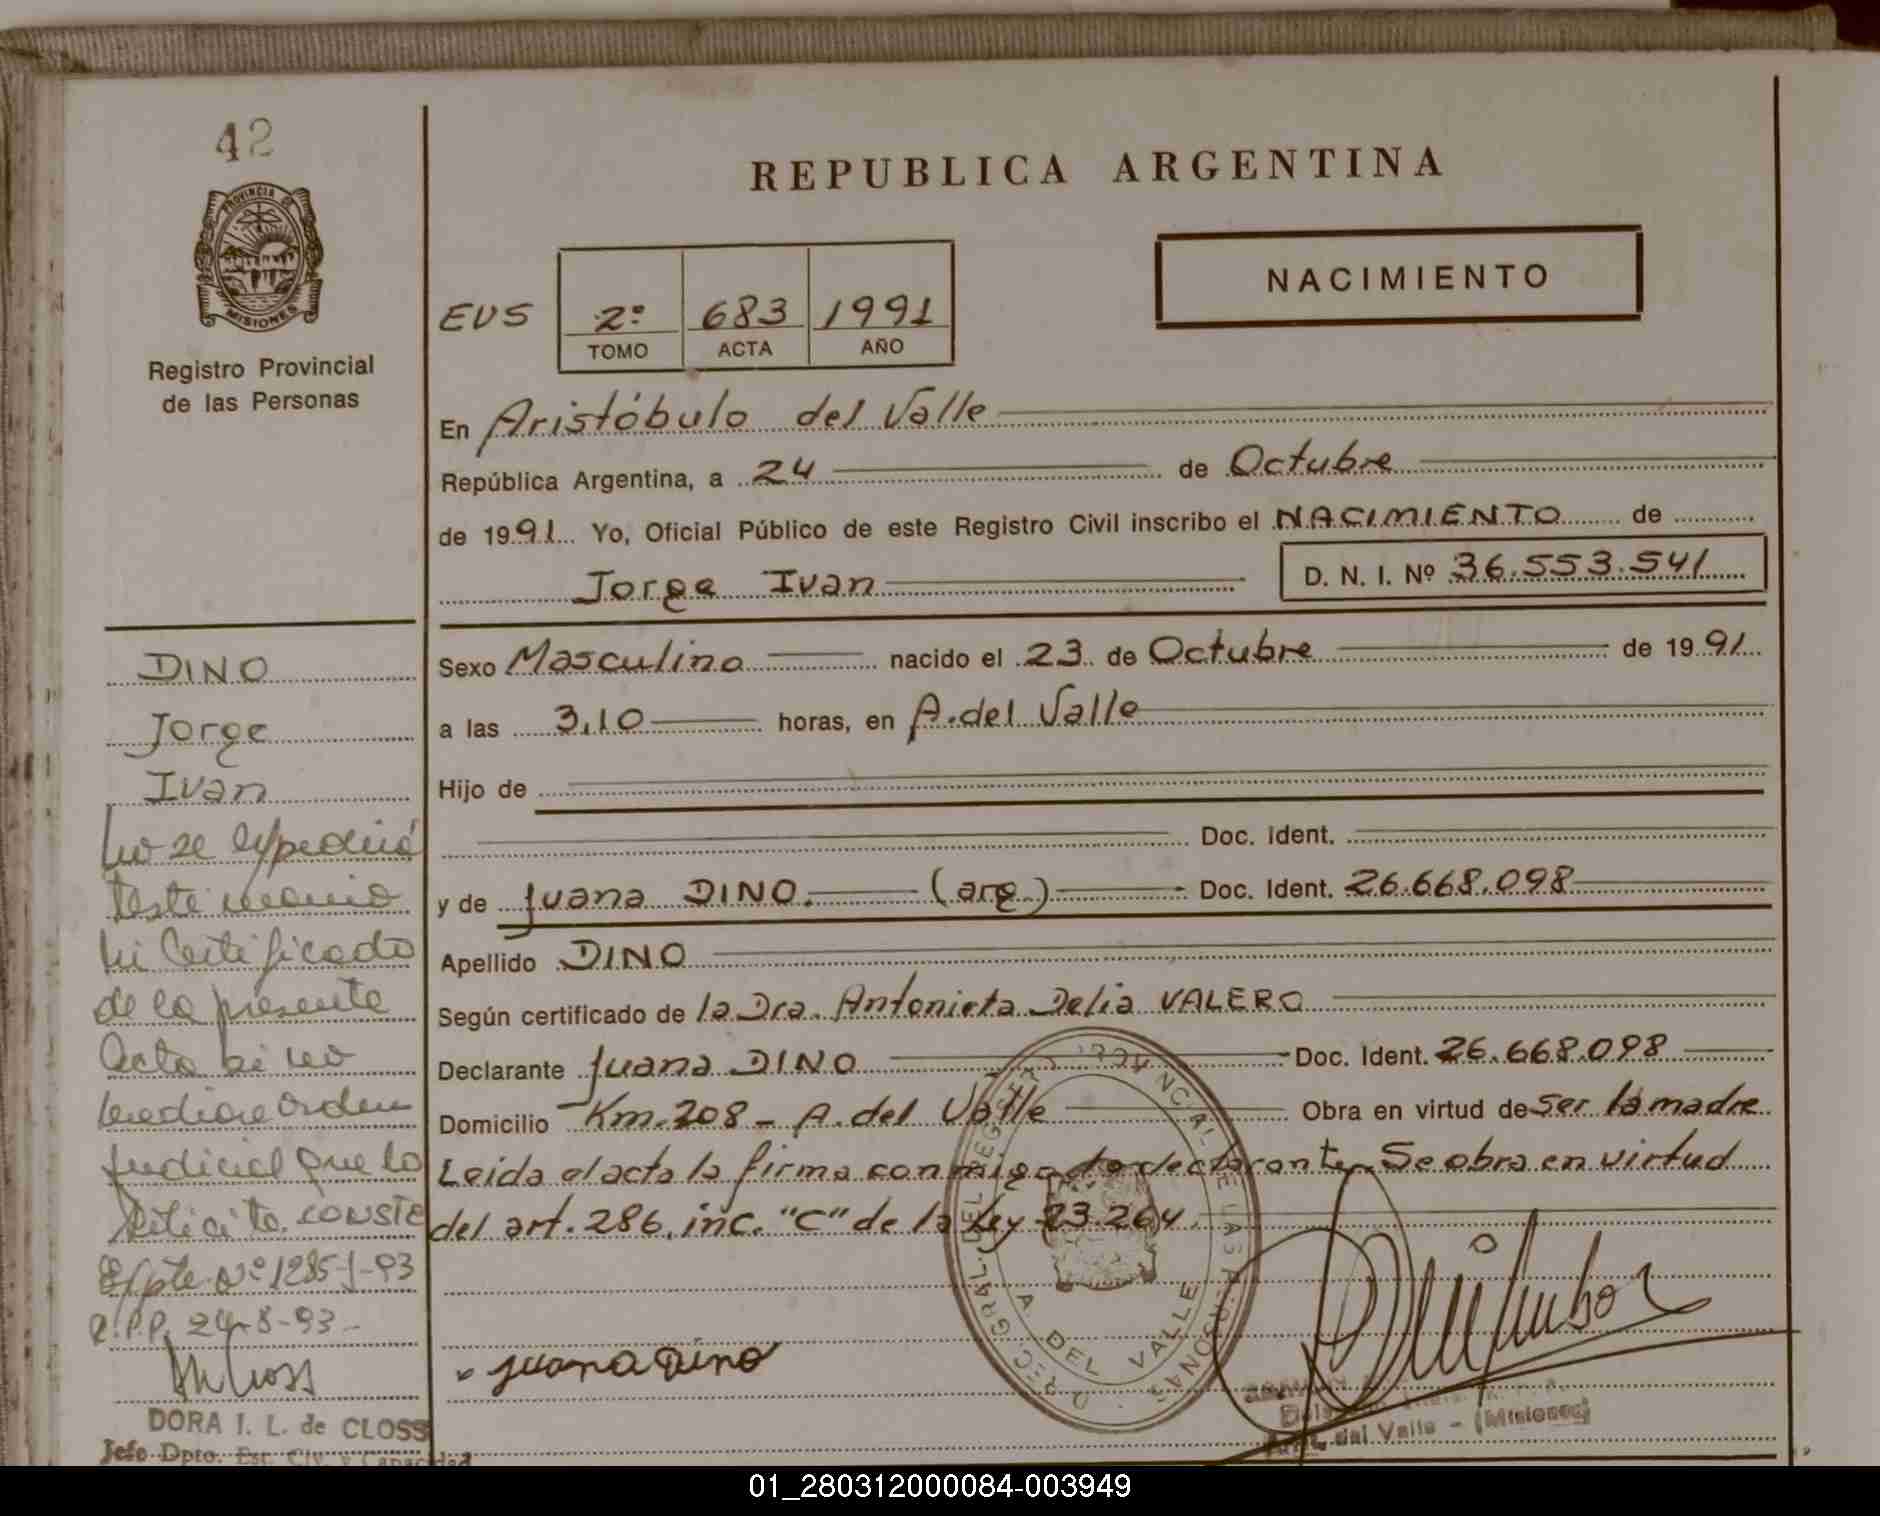 42
PROVINCIA DE
MISIONES
Registro Provincial
de las Personas
DINO
Jorge
Ivan
No se expedirá
testimonio
ni certificado
de la presente
acta si no
mediare orden
judicial que lo
solicite. CONSTE
Expte. Nº 1285-J-93
R.P.P. 24-8-93-
DORA I. L. de CLOSS
Jefe Dpto. Est. Civ. y Capacidad
REPUBLICA ARGENTINA
NACIMIENTO
EUS 2º 683 1991
TOMO ACTA AÑO
En Aristóbulo del Valle
República Argentina, a 24 de Octubre
de 1991 Yo, Oficial Público de este Registro Civil inscribo el NACIMIENTO de
Jorge Ivan D. N. I. Nº 36.553.541
Sexo Masculino nacido el 23 de Octubre de 1991
a las 3,10 horas, en A. del Valle
Hijo de
Doc. Ident.
y de Juana DINO. (arg.) Doc. Ident. 26.668.098
Apellido DINO
Según certificado de la Dra. Antonieta Delia VALERO
Declarante Juana DINO Doc. Ident. 26.668.098
Domicilio Km. 208 - A. del Valle Obra en virtud de ser la madre
Leida el acta la firma conmigo la declarante. Se obra en virtud
del art. 286, inc. "C" de la Ley 23.264.
A. DEL VALLE
Juana Dino
del Valle - (Misiones)
01_280312000084-003949